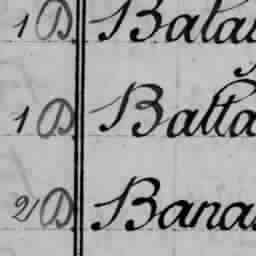 1 D. Balai
1 D. Balta
2 D. Bana